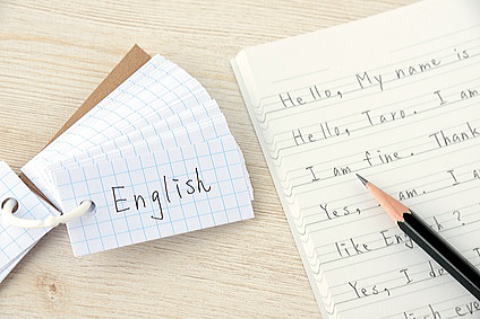 English
Hello, My name is
Hello, Taro. I am
I am fine. Thank
Yes, am. I a
like English?
Yes, I do I
lish eve